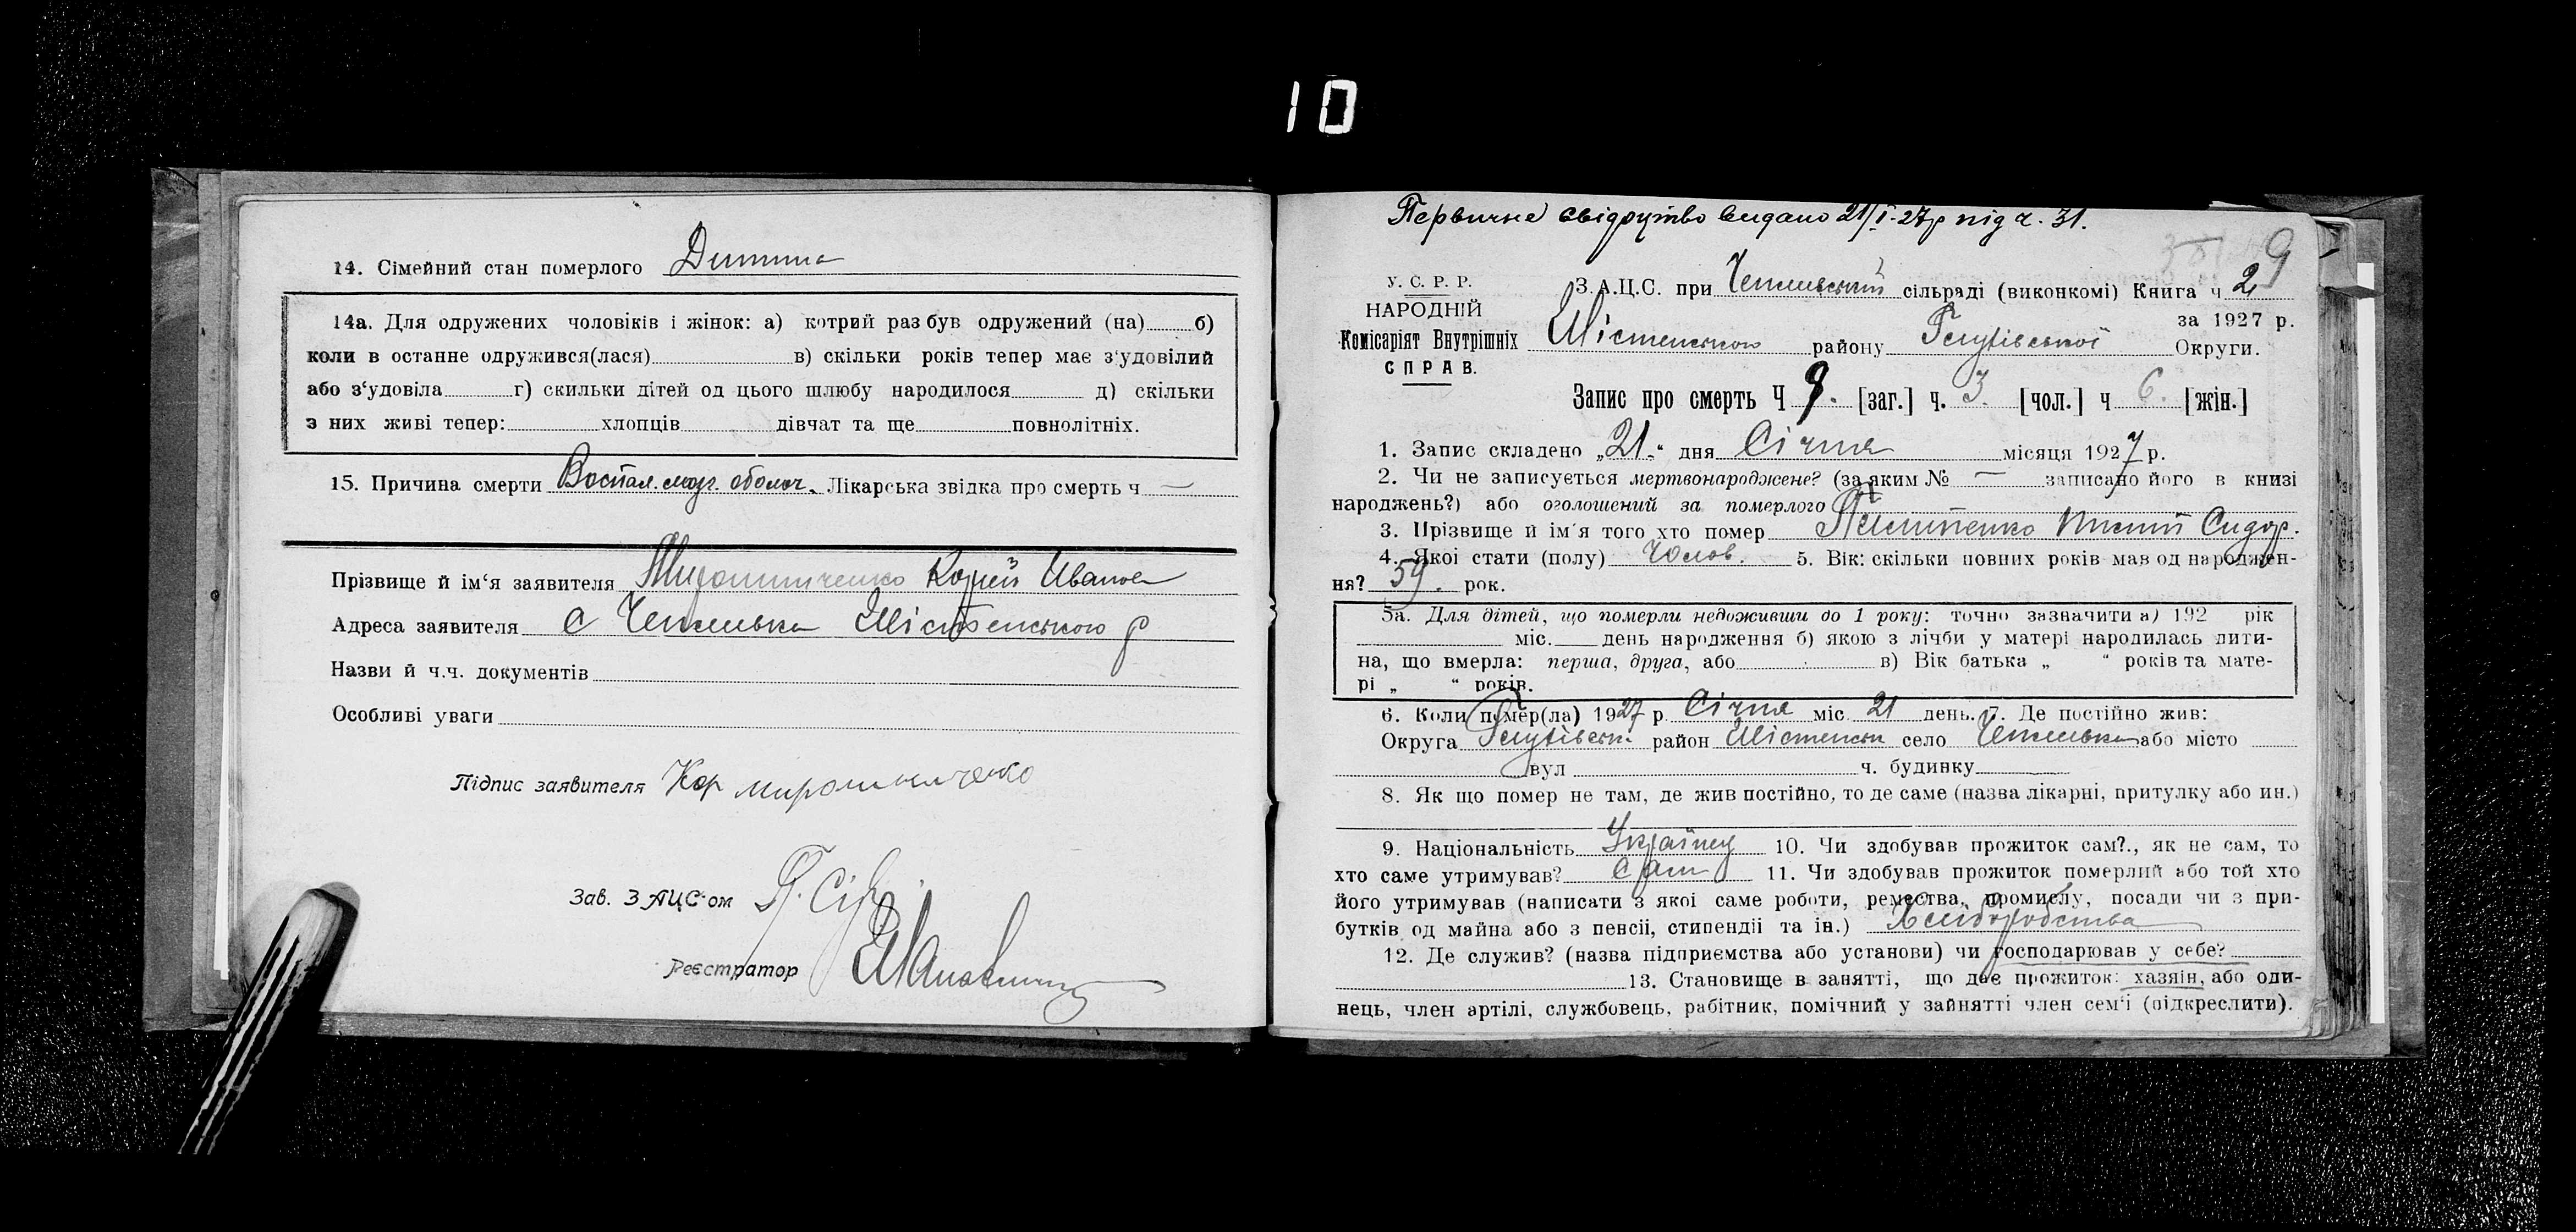 10
14. Сімейний стан померлого Дитина
14а. Для одружених чоловіків і жінок: а) котрий раз був одружений (на) б)
коли в останне одружився(лася) в) скільки років тепер має з'удовілий
або з'удовіла г) скильки дітей од цього шлюбу народилося д) скільки
з них живі тепер: хлопців дівчат та ще повнолітніх.
15. Причина смерти Воспал. мозг. оболоч. Лікарська звідка про смерть ч —
Прізвище й ім'я заявителя Мирошниченко Корній Иванов
Адреса заявителя с Чепелівка Шістенського р
Назви й ч.ч. документів
Особливі уваги
Підпис заявителя Кор мирошниченко
Зав. ЗАЦС-ом
Реєстратор
Первичне свідоцтво видано 21/I-27р під ч. 31.
9
У. С. Р. Р.
НАРОДНІЙ
Комісаріят Внутрішніх
СПРАВ.
З.А.Ц.С. при сільраді (виконкомі) Книга ч 2
за 1927 р.
району Округи.
Запис про смерть Ч 9. [заг.] ч. 3. [чол.] ч 6. [жін.]
1. Запис складено „21." дня Січня місяця 1927 р.
2. Чи не записується мертвонароджене? (за яким № — записано його в книзі
народжень?) або оголошений за померлого
3. Прізвище й ім'я того хто помер Сидор.
4. Якоі стати (полу) Чолов. 5. Вік: скільки повних років мав од народжен-
ня? 59. рок.
5а. Для дітей, що померли недоживши до 1 року: точно зазначити а) 192 рік
міс. день народження б) якою з лічби у матері народилась дити-
на, що вмерла: перша, друга, або в) Вік батька „ " років та мате-
рі „ " років.
6. Коли помер(ла) 1927 р. Січня міс. 21 день. 7. Де постійно жив:
Округа район село або місто
вул ч. будинку
8. Як що помер не там, де жив постійно, то де саме (назва лікарні, притулку або ин.)
9. Національність Українец 10. Чи здобував прожиток сам?., як не сам, то
хто саме утримував? сам 11. Чи здобував прожиток померлий або той хто
його утримував (написати з якоі саме роботи, ремества, промислу, посади чи з при-
бутків од майна або з пенсіі, стипендіі та ін.) Хлиборобства
12. Де служив? (назва підприємства або установи) чи господарював у себе?
13. Становище в занятті, що дає прожиток: хазяін, або оди-
нець, член артілі, службовець, рабітник, помічний у зайнятті член сем'ї (підкреслити).